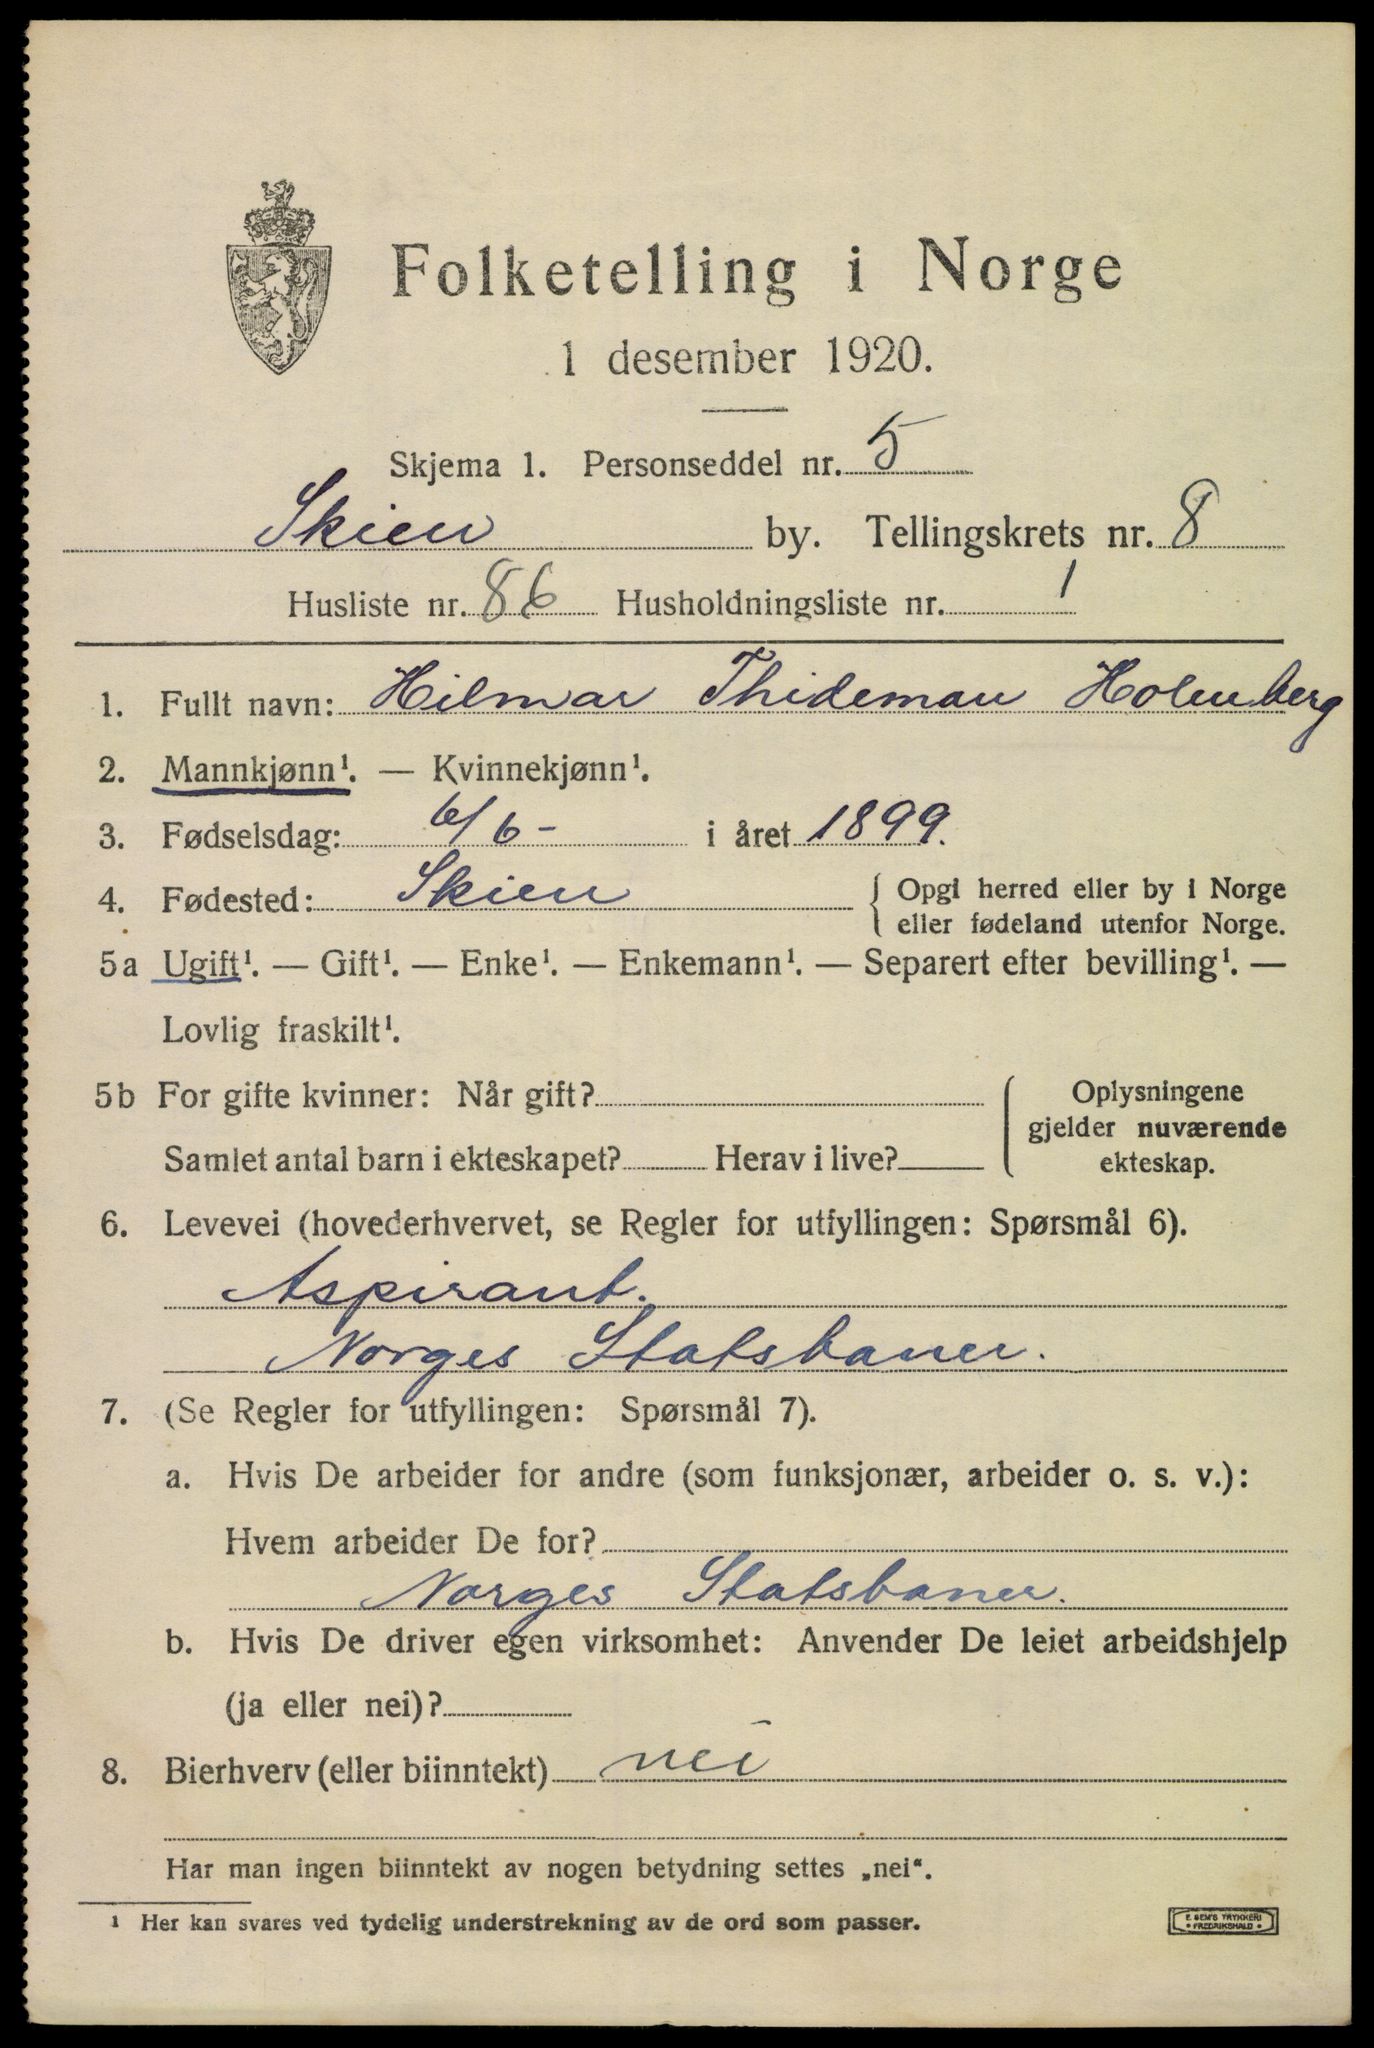 Folketelling i Norge
1 desember 1920.
Skjema 1. Personseddel nr. 5
Skien by. Tellingskrets nr. 8
Husliste nr. 86 Husholdningsliste nr. 1
1. Fullt navn: Hilmar Thideman Holmberg
2. Mannkjønn¹. — Kvinnekjønn¹.
3. Fødselsdag: 6/6- i året 1899.
4. Fødested: Skien { Opgi herred eller by i Norge
eller fødeland utenfor Norge.
5a Ugift¹. — Gift¹. — Enke¹. — Enkemann¹. — Separert efter bevilling¹. —
Lovlig fraskilt¹.
5b For gifte kvinner: Når gift?
Samlet antal barn i ekteskapet? Herav i live?
Oplysningene
gjelder nuværende
ekteskap.
6. Levevei (hovederhvervet, se Regler for utfyllingen: Spørsmål 6).
Aspirant.
Norges Statsbaner.
7. (Se Regler for utfyllingen: Spørsmål 7).
a. Hvis De arbeider for andre (som funksjonær, arbeider o. s. v.):
Hvem arbeider De for?
Norges Statsbaner.
b. Hvis De driver egen virksomhet: Anvender De leiet arbeidshjelp
(ja eller nei)?
8. Bierhverv (eller biinntekt) nei
Har man ingen biinntekt av nogen betydning settes „nei“.
¹ Her kan svares ved tydelig understrekning av de ord som passer.
E. SEM'S TRYKKERI
• FREDRIKSHALD •